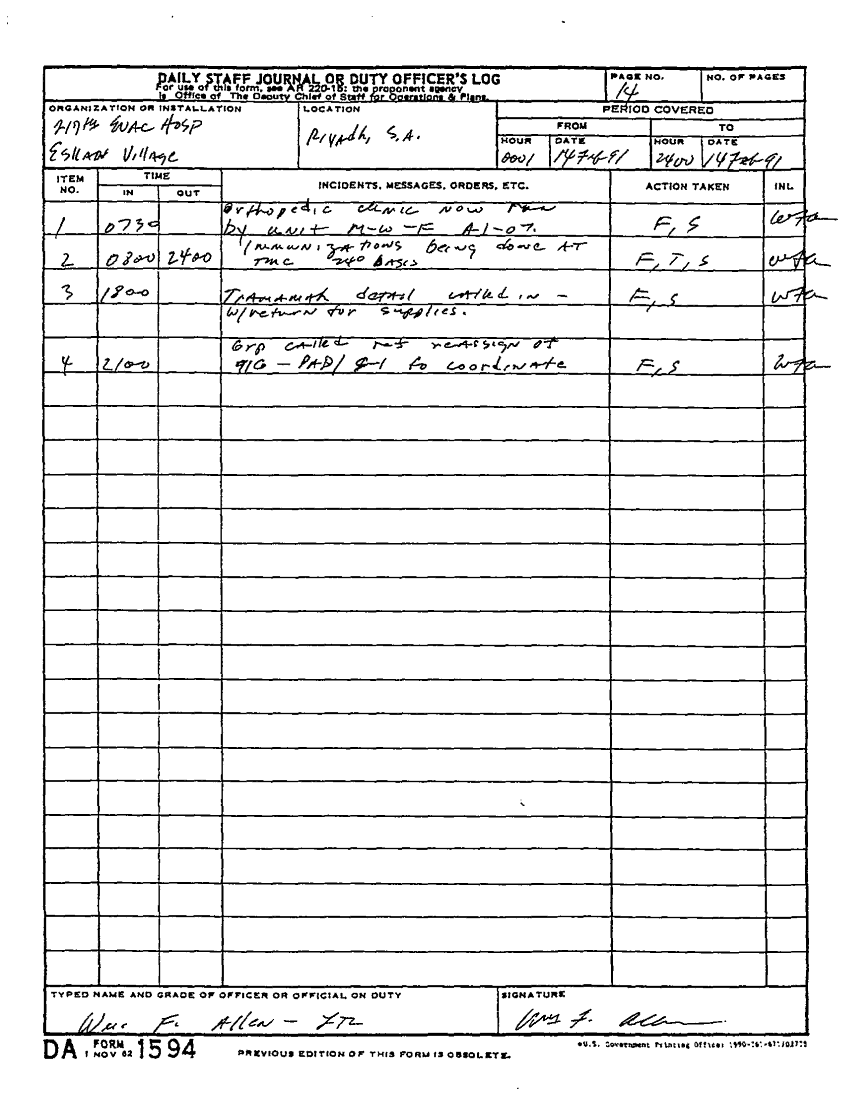 DAILY STAFF JOURNAL OR DUTY OFFICER'S LOG
For use of this form, see AR 220-15; the proponent agency
is Office of The Deputy Chief of Staff for Operations & Plans.
PAGE NO.
14
NO. OF PAGES
ORGANIZATION OR INSTALLATION
217th EVAC HOSP
ESKAN Village
LOCATION
Riyadh, S.A.
PERIOD COVERED
FROM
TO
HOUR
DATE
HOUR
DATE
0001
14 Feb 91
2400
14 Feb 91
ITEM NO.
TIME
IN
OUT
INCIDENTS, MESSAGES, ORDERS, ETC.
ACTION TAKEN
INL.
Orthopedic clinic now run
1 0730 by unit M-W-F A-1-07. F, S wfa
Immunizations being done AT
2 0800 2400 TMC BASIS F, T, S wfa
3 1800 detail called in - F, S wfa
w/return for supplies.
Grp called ref reassign of
4 2100 91G - PAD/ to coordinate F, S wfa
TYPED NAME AND GRADE OF OFFICER OR OFFICIAL ON DUTY
Wm F. Allen -
SIGNATURE
Wm F. Allen
DA FORM 1594
1 NOV 62
PREVIOUS EDITION OF THIS FORM IS OBSOLETE.
U.S. Government Printing Office: